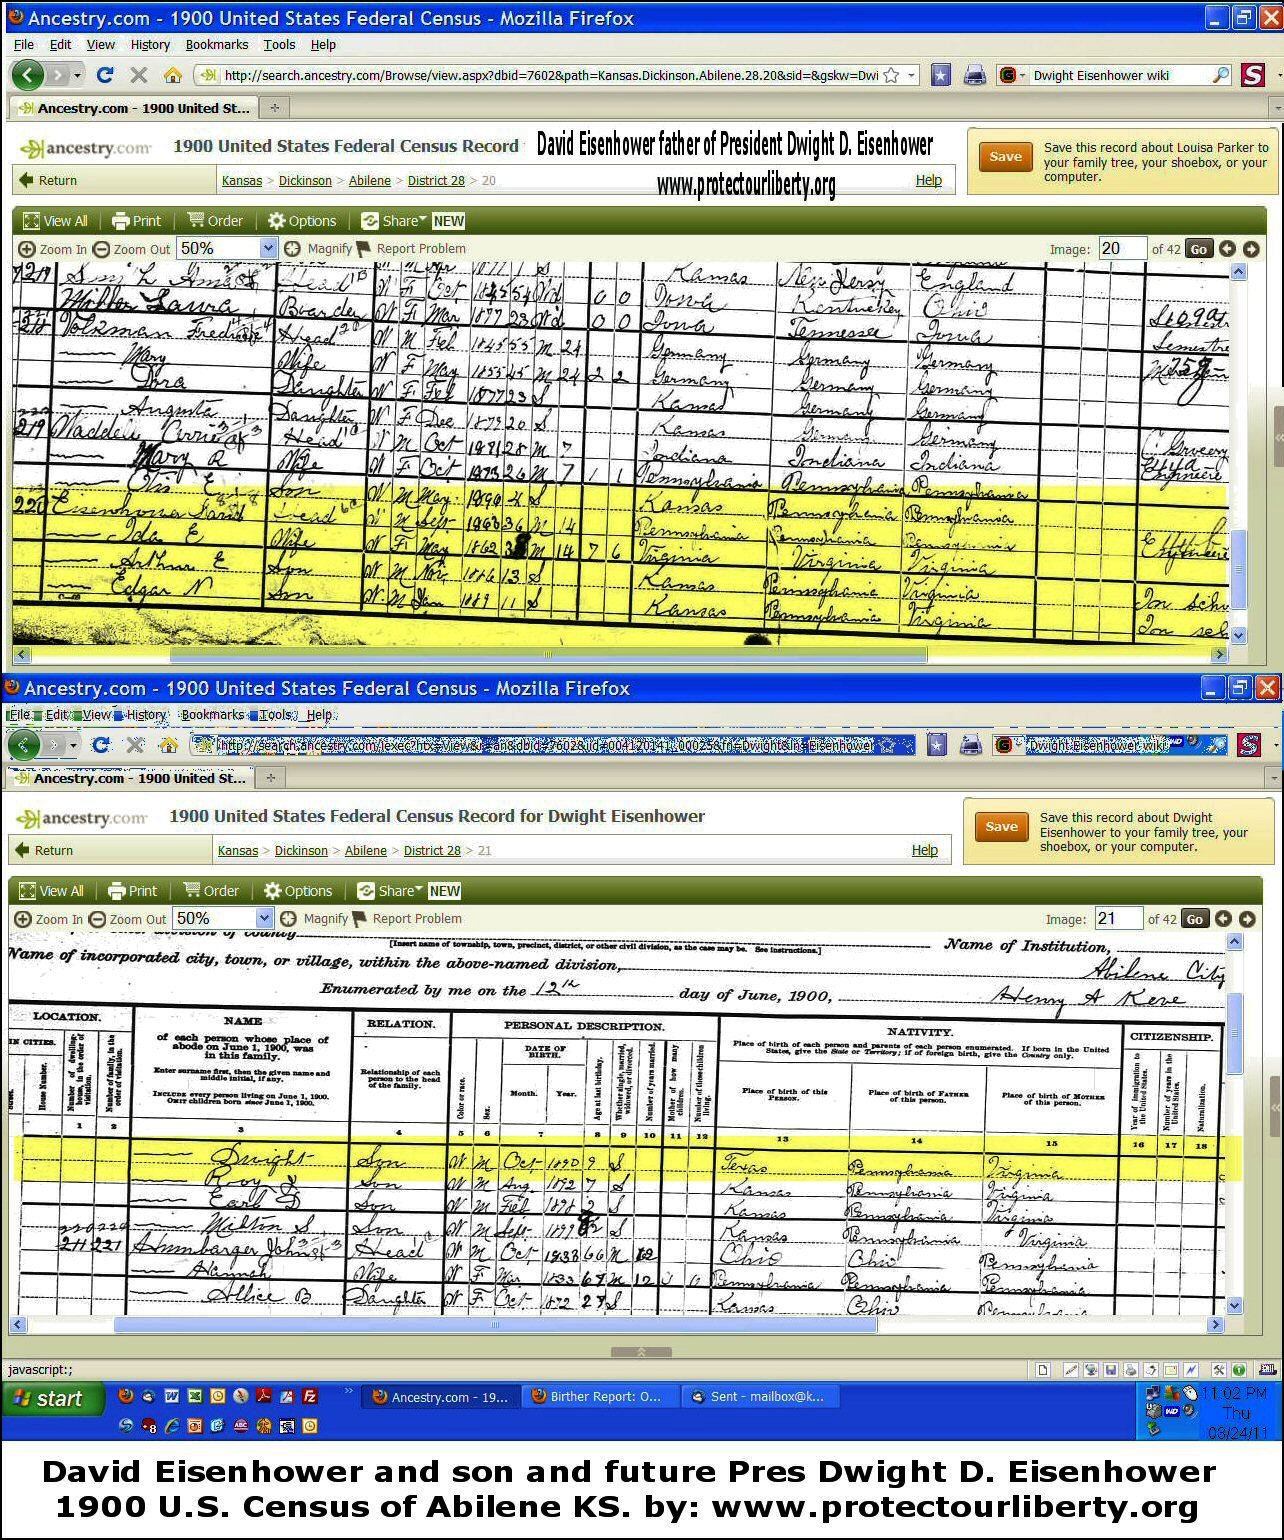 Ancestry.com - 1900 United States Federal Census - Mozilla Firefox
File Edit View History Bookmarks Tools Help
http://search.ancestry.com/Browse/view.aspx?dbid=7602&path=Kansas.Dickinson.Abilene.28.20&sid=&gskw=Dwi
Dwight Eisenhower wiki
Ancestry.com - 1900 United St...
ancestry.com 1900 United States Federal Census Record David Eisenhower father of President Dwight D. Eisenhower
www.protectourliberty.org
Save
Save this record about Louisa Parker to
your family tree, your shoebox, or your
computer.
Return Kansas > Dickinson > Abilene > District 28 > 20 Help
View All Print Order Options Share NEW
Zoom In Zoom Out 50% Magnify Report Problem Image: 20 of 42 Go
Head Kansas New Jersy England
Miller Laura Boarder W F Mar 1877 23 Wd 0 0 Iowa Kentuckey Ohio
Head W M Feb 1845 55 M 24 Germany Germany Germany
Mary Wife W F May 1855 45 M 24 2 2 Germany Germany Germany
Dora Daughter W F Feb 1877 23 S Kansas Germany Germany
Augusta Daughter W F Dec 1879 20 S Kansas Germany Germany
219 Head M Oct 28 M 7 Indiana Indiana Indiana
Mary R Wife W F Oct 1873 26 M 7 1 1 Pennsylvania Pennsylvania Pennsylvania
Otis E Son W M May 1896 4 S Kansas Pennsylvania Pennsylvania
220 Head W M Sept 1863 36 M 14 Pennsylvania Pennsylvania Pennsylvania
Ida E Wife W F May 1862 38 M 14 7 6 Virginia Virginia Virginia
Arthur E Son W M Nov 1886 13 S Kansas Pennsylvania Virginia
Edgar N Son W M Jan 1889 11 S Kansas Pennsylvania Virginia
Ancestry.com - 1900 United States Federal Census - Mozilla Firefox
File Edit View History Bookmarks Tools Help
Dwight Eisenhower wiki
Ancestry.com - 1900 United St...
ancestry.com 1900 United States Federal Census Record for Dwight Eisenhower
Save
Save this record about Dwight
Eisenhower to your family tree, your
shoebox, or your computer.
Return Kansas > Dickinson > Abilene > District 28 > 21 Help
View All Print Order Options Share NEW
Zoom In Zoom Out 50% Magnify Report Problem Image: 21 of 42 Go
[Insert name of township, town, precinct, district, or other civil division, as the case may be. See instructions.] Name of Institution,
Name of incorporated city, town, or village, within the above-named division, Abilene City
Enumerated by me on the 12th day of June, 1900, Henry A Keve
LOCATION.
IN CITIES.
House Number.
Number of dwelling house, in the order of visitation.
Number of family, in the order of visitation.
NAME
of each person whose place of
abode on June 1, 1900, was
in this family.
Enter surname first, then the given name and
middle initial, if any.
INCLUDE every person living on June 1, 1900.
OMIT children born since June 1, 1900.
RELATION.
Relationship of each
person to the head
of the family.
PERSONAL DESCRIPTION.
Color or race.
Sex.
DATE OF
BIRTH.
Month. Year.
Age at last birthday.
Whether single, married, widowed, or divorced.
Number of years married.
Mother of how many children.
Number of these children living.
NATIVITY.
Place of birth of each person and parents of each person enumerated. If born in the United
States, give the State or Territory; if of foreign birth, give the Country only.
Place of birth of this
PERSON.
Place of birth of FATHER
of this person.
Place of birth of MOTHER
of this person.
CITIZENSHIP.
Year of immigration to the United States.
Number of years in the United States.
Naturalization.
1 2 3 4 5 6 7 8 9 10 11 12 13 14 15 16 17 18
Dwight Son W M Oct 1890 9 S Texas Pennsylvania Virginia
Roy J Son W M Aug 1892 7 S Kansas Pennsylvania Virginia
Earl D Son W M Feb 1898 2 S Kansas Pennsylvania Virginia
Milton S Son W M Sept 1899 S Kansas Pennsylvania Virginia
211 221 Humbarger Head W M Oct 1833 66 M 12 Ohio Ohio Pennsylvania
Hannah Wife W F Mar 1833 67 M 12 Pennsylvania Pennsylvania Pennsylvania
Allice B Daughter W F Oct 1872 27 S Kansas Ohio Pennsylvania
javascript:;
start
Ancestry.com - 19...
Birther Report: O...
Sent - mailbox@k...
11:02 PM
Thu
03/24/11
David Eisenhower and son and future Pres Dwight D. Eisenhower
1900 U.S. Census of Abilene KS. by: www.protectourliberty.org